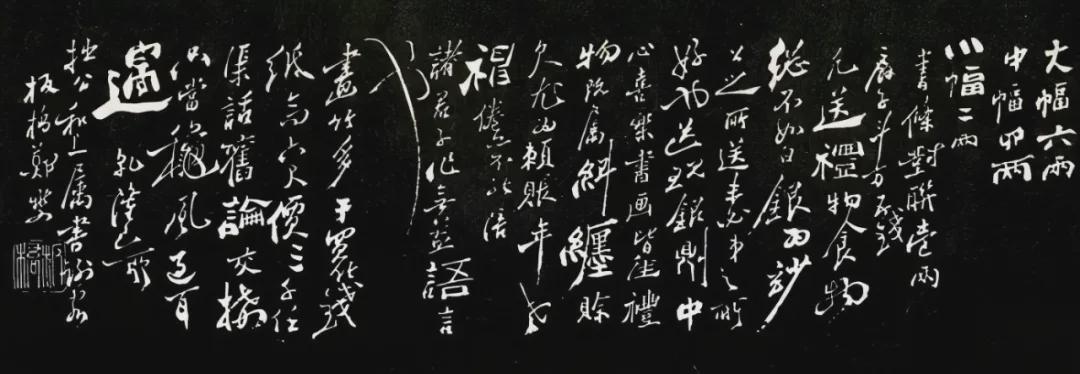 大幅六兩
中幅四兩
小幅二兩
書條對聯壹兩
扇子斗方五錢
凡送禮物食物
總不如白銀為妙
公之所送未必弟之所
好也送現銀則中
心喜樂書画皆佳禮
物既属糾纏賒
欠尤為賴賬年老
神倦亦不能陪
諸君子作無益語言
也
畫竹多于買竹錢
紙高六尺價三千任
渠話舊論交接
只當秌風過耳
邊 乾隆己卯
拙公和上属書謝客
板橋鄭燮
板橋